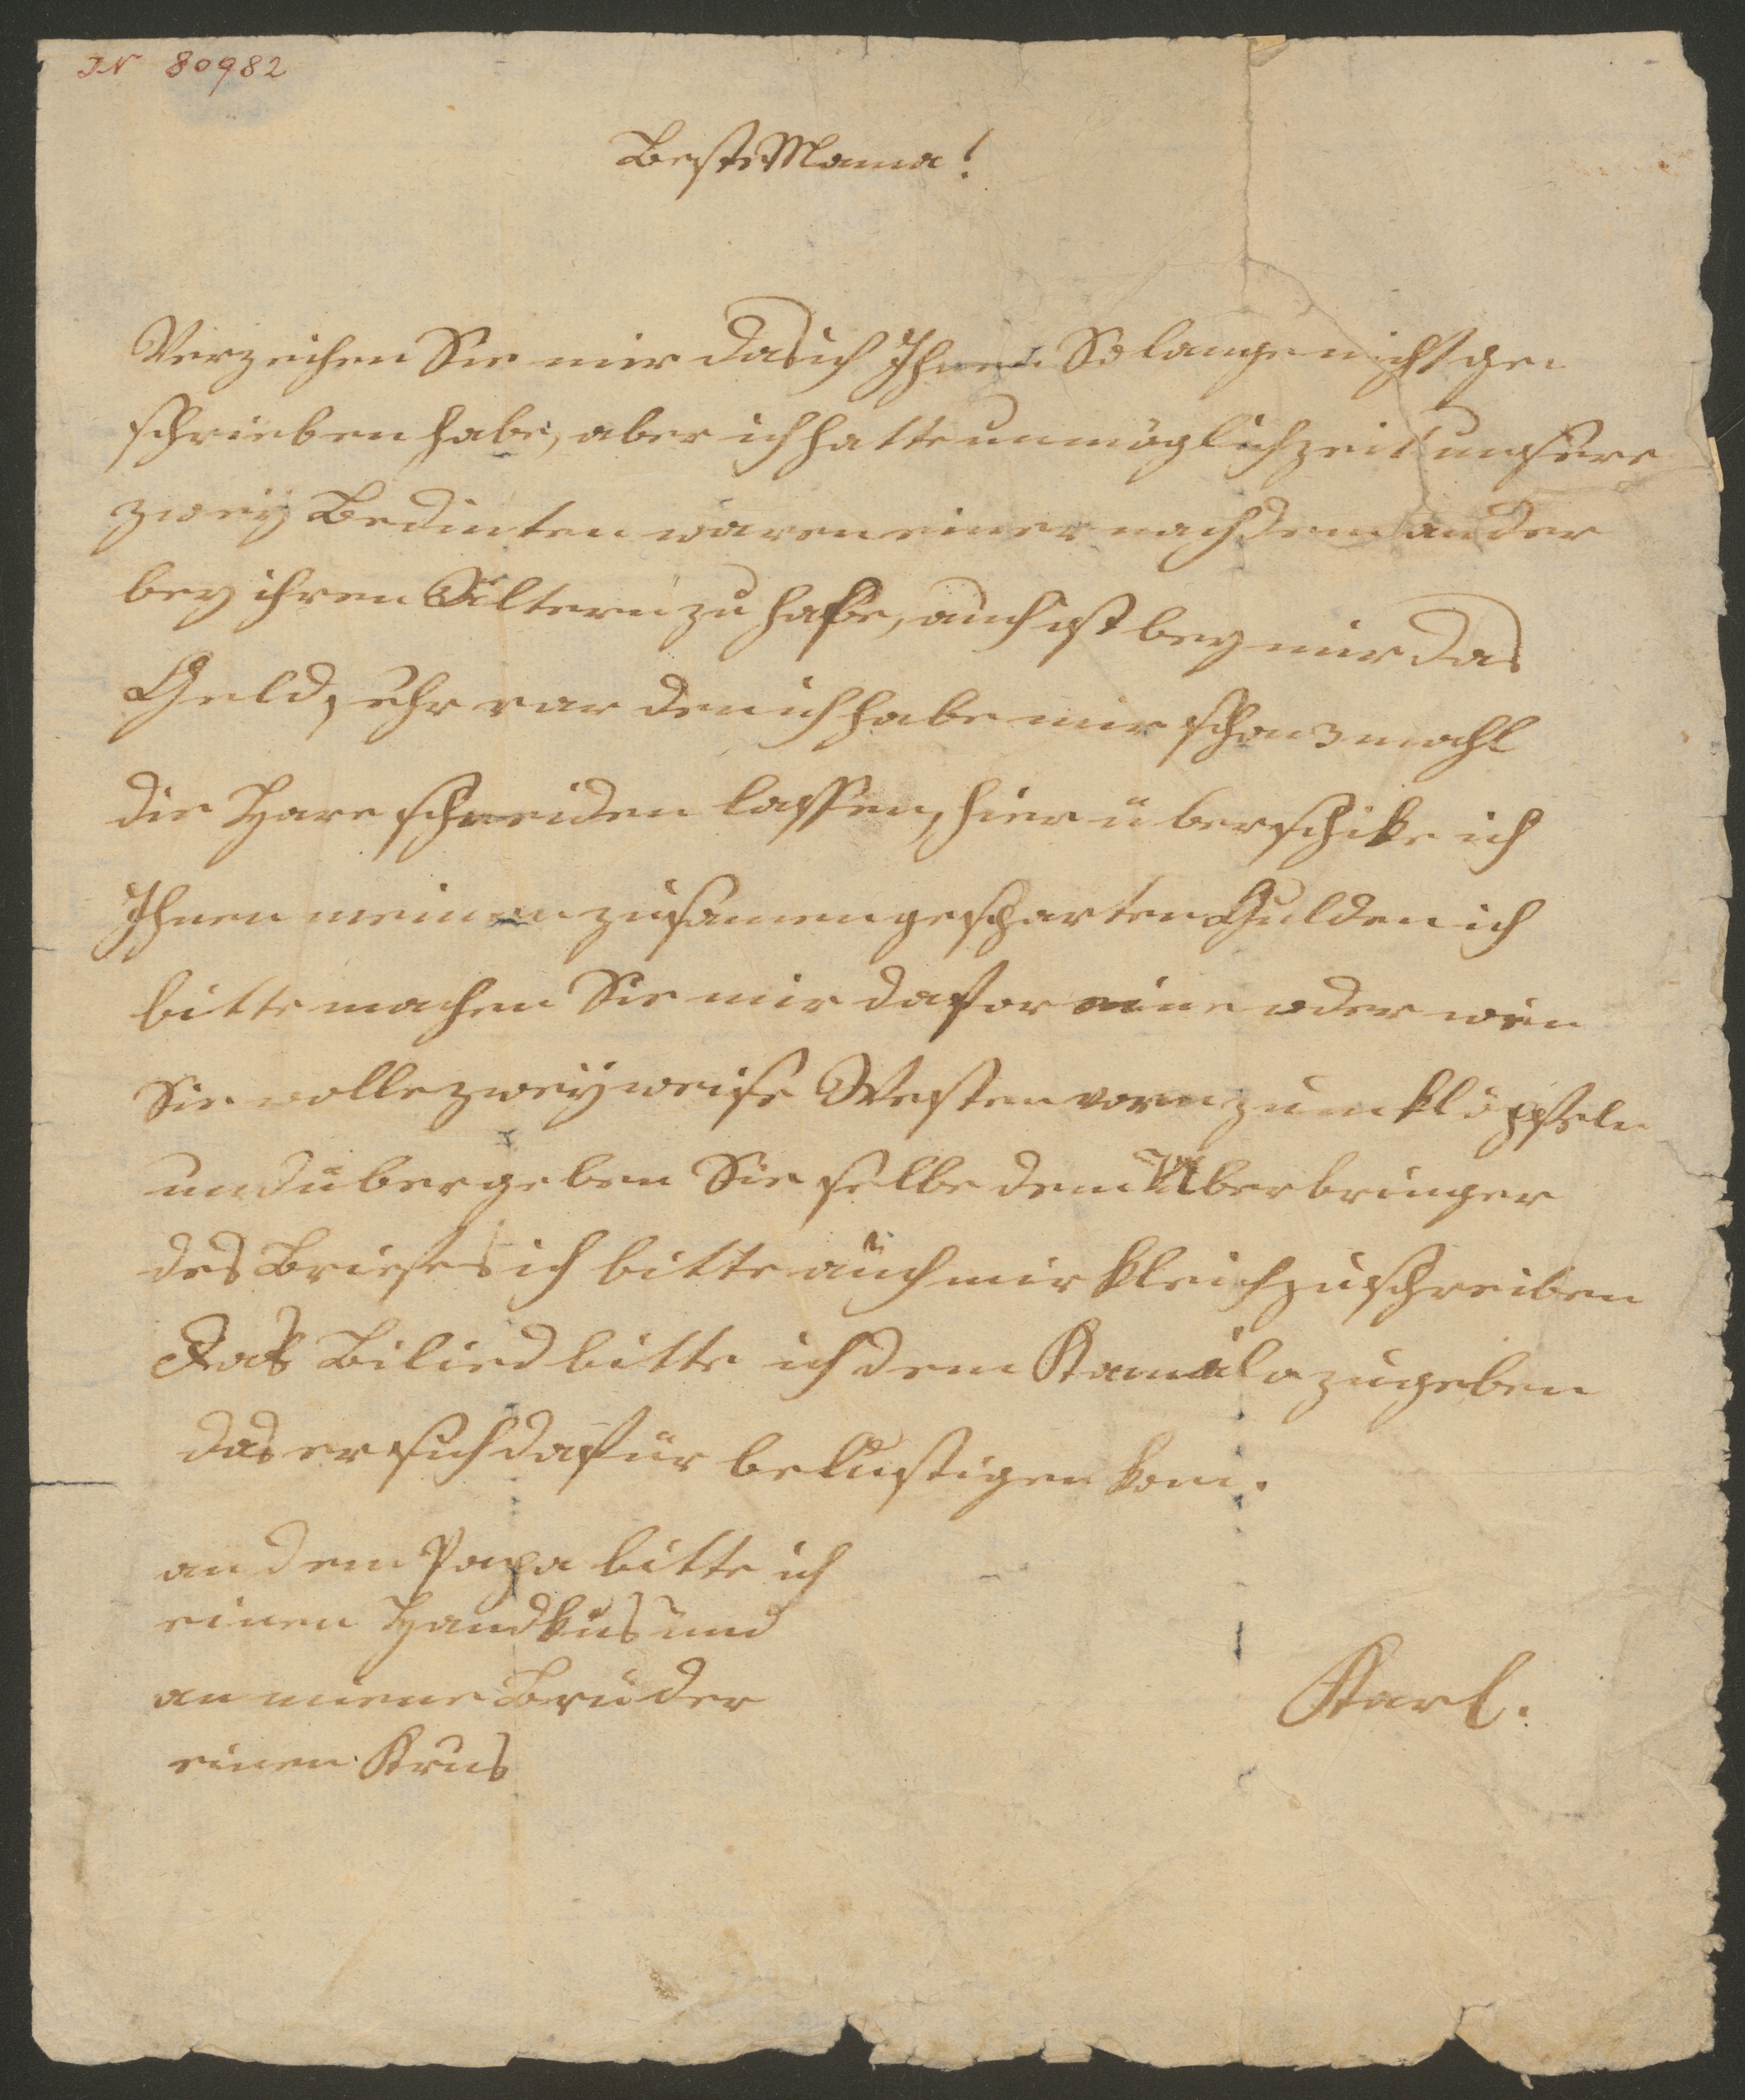 JN 80982
Beste Mama!
Verzeichen Sie mir das ich Ihnen So lange nicht ge-
schrieben habe, aber ich hatte unmöglich zeit unsere
zwey Bedinten waren einer nach dem ander
bey ihren Ältern zu hase, auch ist bey mir das
Geld sehr rar den ich habe mir schon 3 mahl
die Hare schneiden lassen, hier überschike ich
Ihnen meinen zusamengesparten Gulden ich
bitte machen Sie mir dafor eine oder wen
Sie wolle zwey weise Westen vorn zum klöpfseln
und übergeben Sie selbe dem Überbringer
des Briefes ich bitte auch mir kleich zu schreiben
Das Bilied bitte ich dem Kamila zu geben
das er sich dafür belustigen kan.
an dem Papa bitte ich
einen Handkus und
an meine Brüder
einen Krus
Karl.